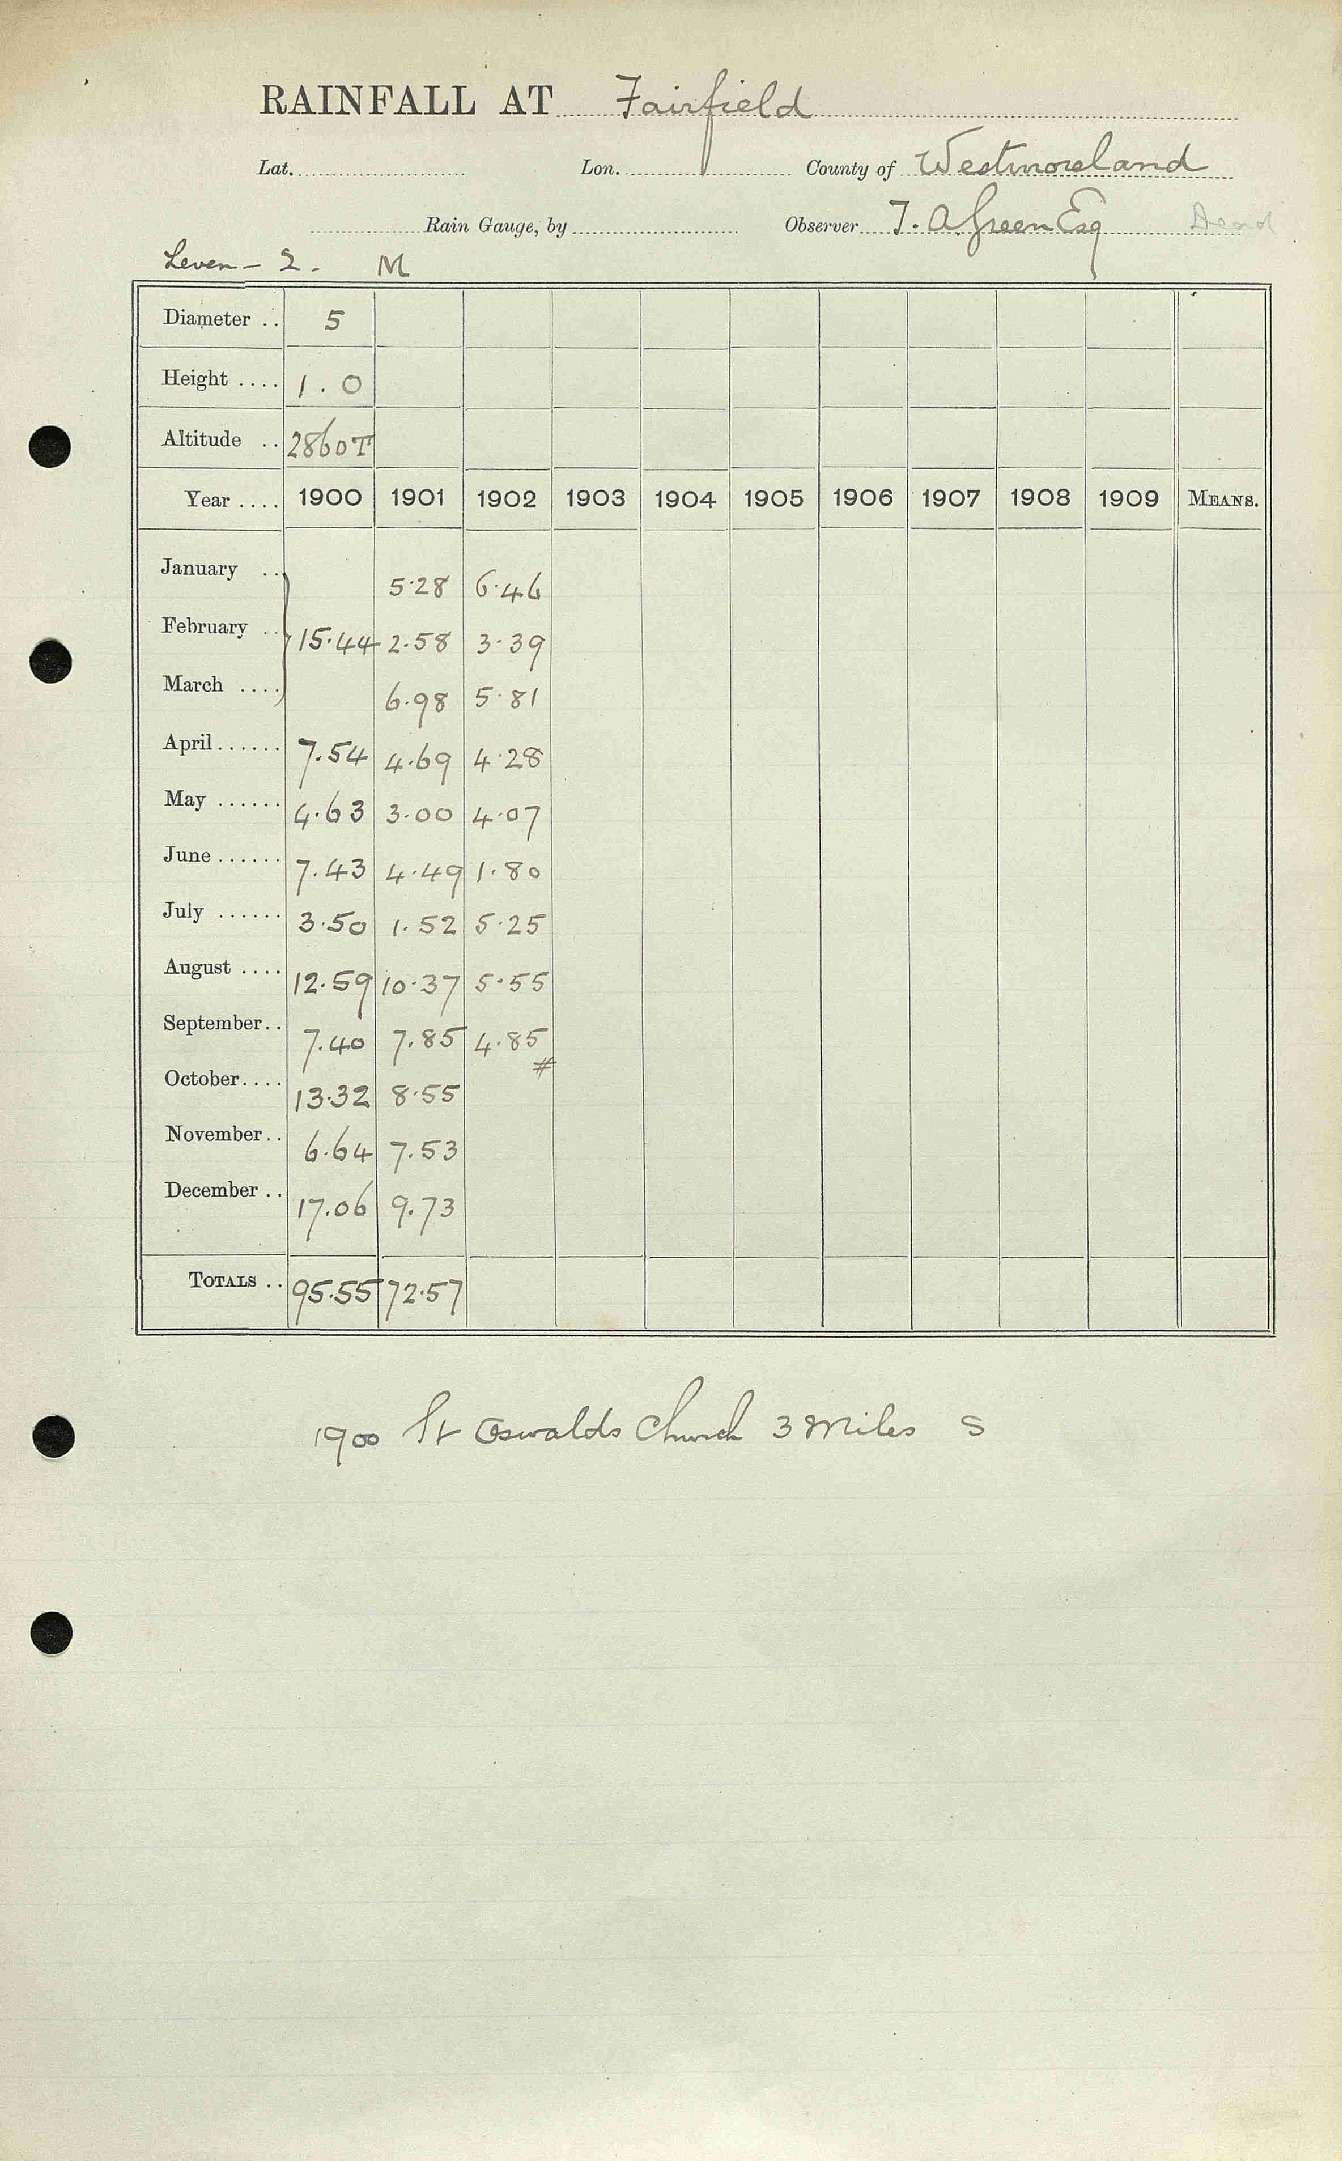 RAINFALL AT Fairfield
Lat. Lon. County of Westmoreland
Rain Gauge, by Observer T. A. Green Esq Dead
Leven - 2. M
Diameter .. 5
Height .... 1.0
Altitude .. 2860T
Year .... 1900 1901 1902 1903 1904 1905 1906 1907 1908 1909 MEANS.
January .. 5.28 6.46
February .. 15.44 2.58 3.39
March .... 6.98 5.81
April...... 7.54 4.69 4.28
May ...... 4.63 3.00 4.07
June...... 7.43 4.49 1.80
July ...... 3.50 1.52 5.25
August .... 12.59 10.37 5.55
September.. 7.40 7.85 4.85
#
October.... 13.32 8.55
November.. 6.64 7.53
December .. 17.06 9.73
TOTALS .. 95.55 72.57
1900 St Oswalds Church 3 Miles S